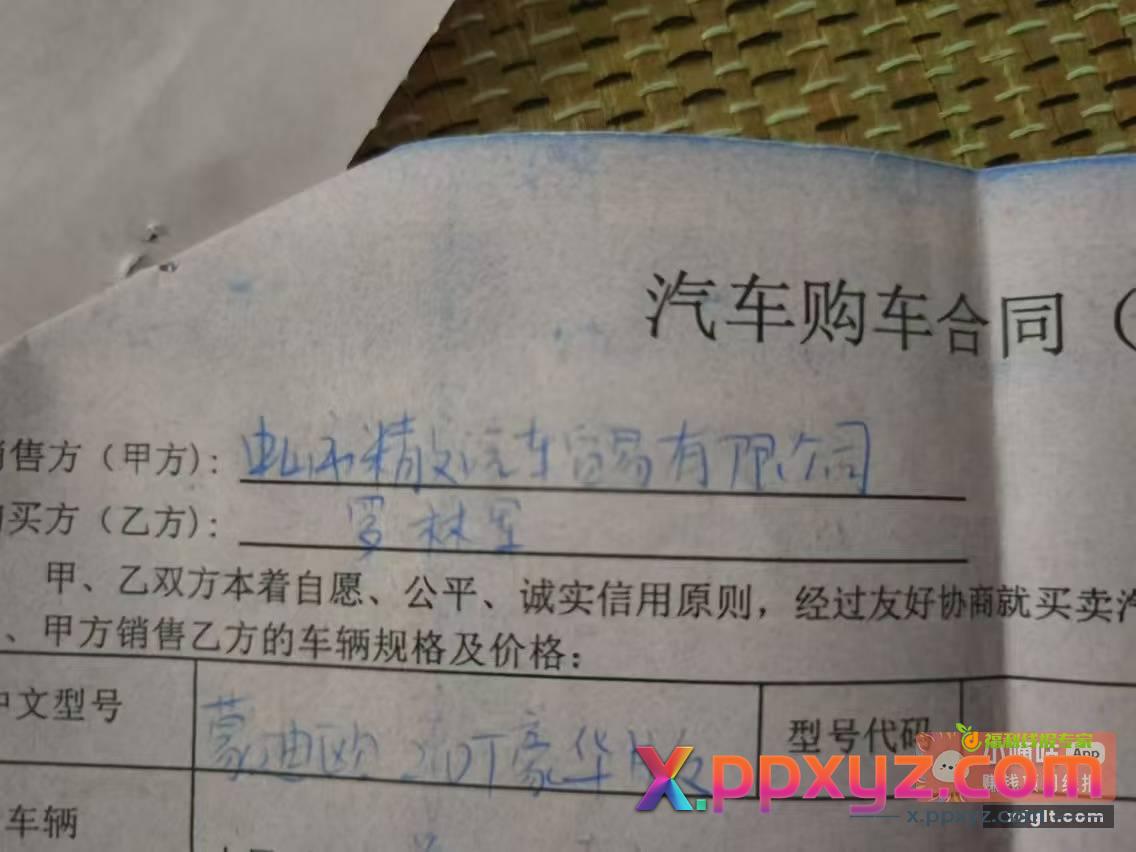 汽车购车合同（
售方（甲方）：中山市精文汽车贸易有限公司
买方（乙方）：罗林军
甲、乙双方本着自愿、公平、诚实信用原则，经过友好协商就买卖汽
、甲方销售乙方的车辆规格及价格：
中文型号 蒙迪欧 2.0T豪华 型号代码
车辆
福利线报专家
App
赚钱项目线报
x.ppxyz.com
x.ppxyz.com